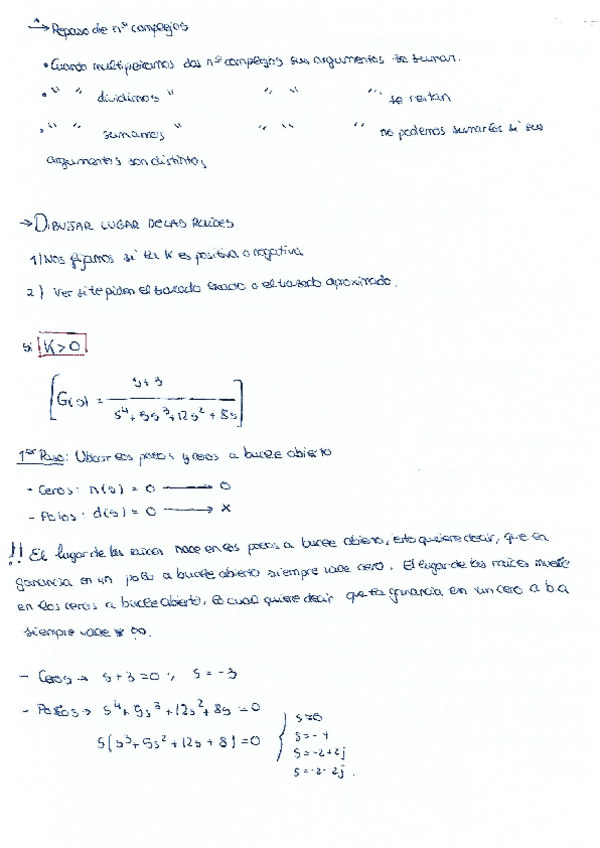 → Repaso de nº complejos
• Cuando multiplicamos dos nº complejos sus argumentos se suman.
• " " dividimos " " " " se restan
• " " sumamos " " " " no podemos sumarlos si sus
argumentos son distintos
→ DIBUJAR LUGAR DE LAS RAICES
1) Nos fijamos si la K es positiva o negativa
2) Ver si te piden el trazado exacto o el trazado aproximado.
si K > 0
[G(s) = s+3 / s⁴+5s³+12s²+8s]
1er Paso: Ubicar los polos y ceros a bucle abierto
- Ceros: n(s) = 0 → O
- Polos: d(s) = 0 → X
!! El lugar de las raices nace en los polos a bucle abierto, esto quiere decir, que la
ganancia en un polo a bucle abierto siempre vale cero. El lugar de las raices muere
en los ceros a bucle abierto, lo cual quiere decir que la ganancia en un cero a b.a
siempre vale ∞.
- Ceros → s+3=0 ; s=-3
- Polos → s⁴+5s³+12s²+8s=0
s(s³+5s²+12s+8)=0
s=0
s=-1
s=-2+2j
s=-2-2j.